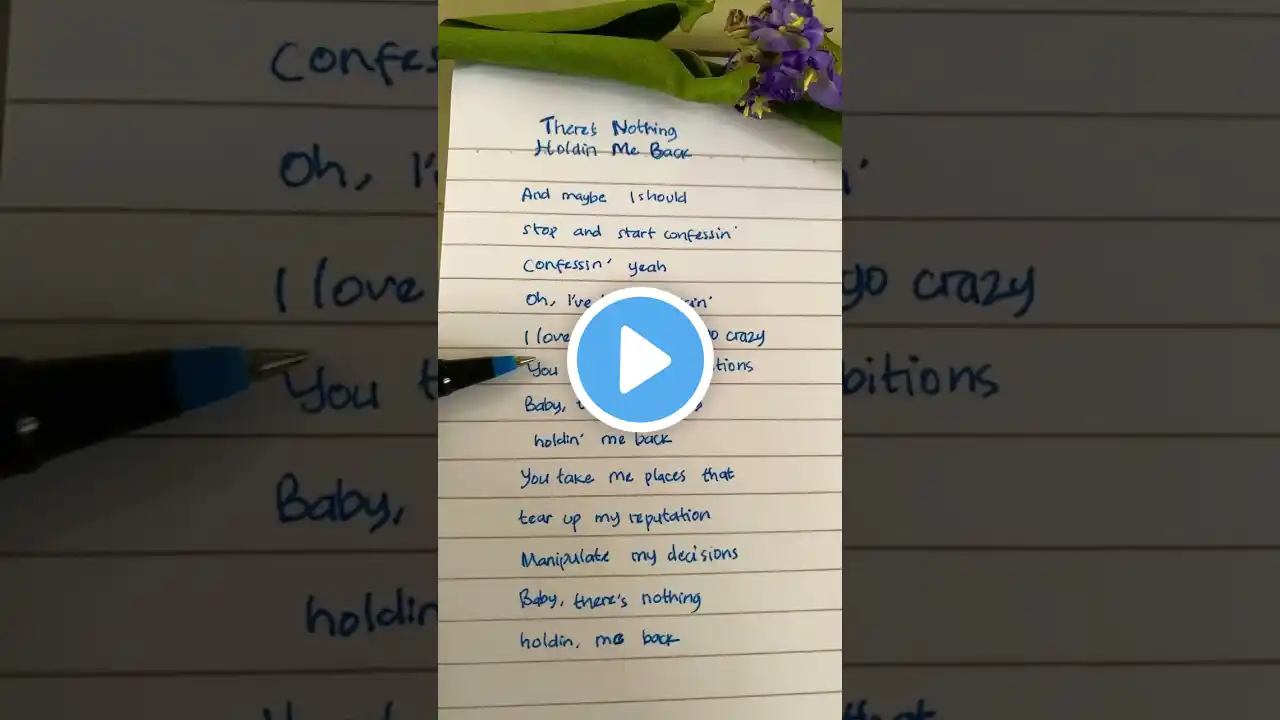 There's Nothing
Holdin Me Back
And maybe I should
stop and start confessin'
Confessin' yeah
Oh, I've
I love go crazy
You
Baby,
holdin' me back
You take me places that
tear up my reputation
Manipulate my decisions
Baby, there's nothing
holdin, me back